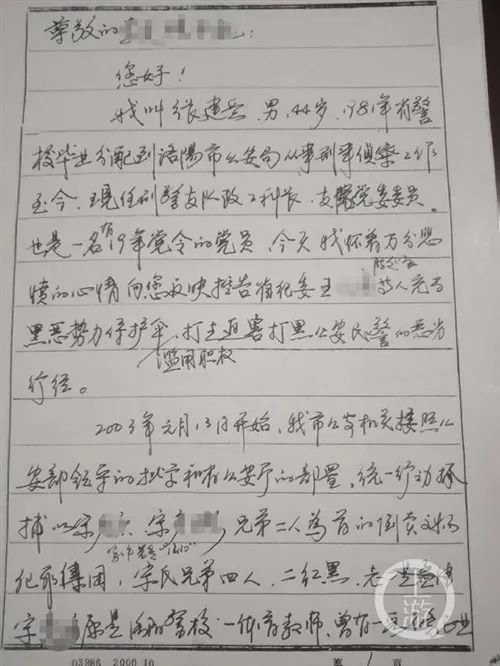 尊敬的
您好!
我叫张建兵,男,44岁,1981年省警
校毕业分配到洛阳市公安局从事刑事侦察工作
至今,现任刑警支队政工科长,支队党委委员。
也是一名有19年党令的党员,今天我怀着万分悲
愤的心情向您反映控告省纪委王 等人充当
黑恶势力保护伞,滥用职权打击迫害打黑公安民警的恶劣
行经。
2003年元月13日开始,我市公安机关按照公
安部领导的批示和省公安厅的部署,统一行动抓
捕以宋 、宋 兄弟二人为首的倒卖文物
犯罪集团,宋氏兄弟四人,二红黑,老
宋 原是洛阳警校一体育教师,曾有一
03986 2000.10 第 1 页
上游